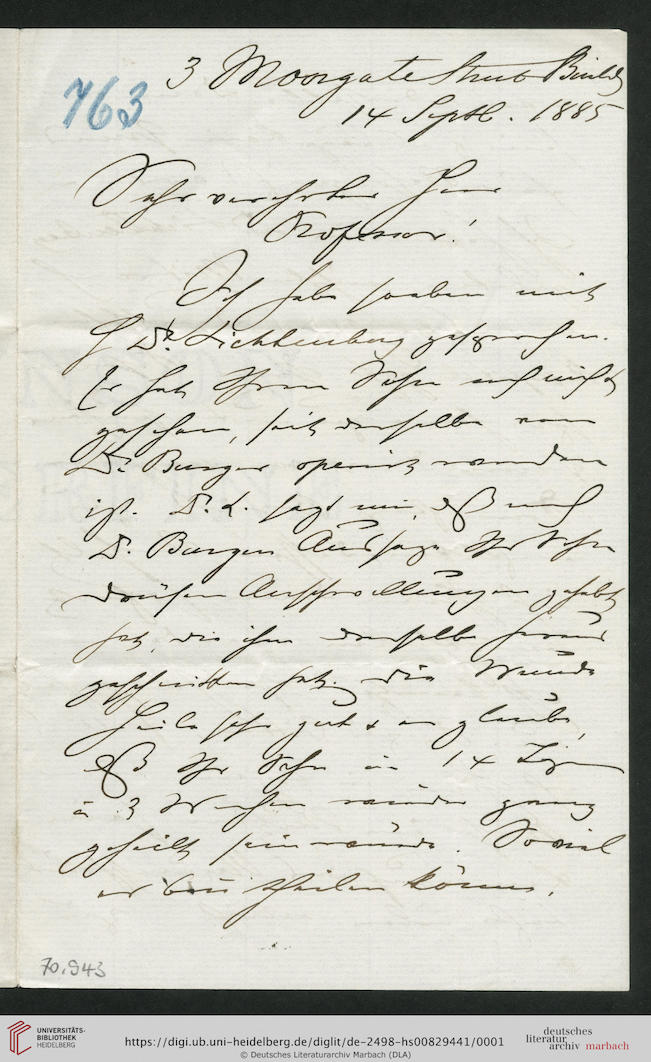 763
3 Moorgate Street Build
14 Septb. 1885
Sehr verehrter Herr
Professor!
Ich habe soeben mit
H Dr. Lichtenberg gesprochen.
Er hat Ihren Sohn noch nicht
gesehen, seit derselbe von
Dr. Burger operirt worden
ist. D. L. sagt mir, daß nach
D. Burgers Aussage Ihr Sohn
Drüsen Anschwellungen gehabt
hat, die ihm derselbe heraus
geschnitten hat. Die Wunde
heile sehr gut & er glaube,
daß Ihr Sohn in 14 Tagen
à 3 Wochen wieder ganz
geheilt sein würde. Soviel
er beurtheilen könne.
70.943
UNIVERSITÄTS-
BIBLIOTHEK
HEIDELBERG
https://digi.ub.uni-heidelberg.de/diglit/de-2498-hs00829441/0001
© Deutsches Literaturarchiv Marbach (DLA)
deutsches
literatur
archiv marbach